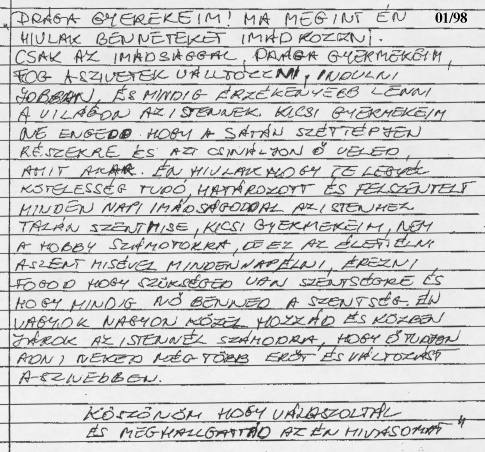 "DRÁGA GYEREKEIM! MA MEGINT ÉN 01/98
HIVLAK BENNETEKET IMÁDKOZZNI.
CSAK AZ IMÁDSÁGGAL, DRÁGA GYERMEKEIM,
FOG A SZIVETEK VÁLLTOZZNI, INDULNI
JOBBAN, ÉS MINDIG ÉRZÉKENYEBB LENNI
A VILÁGON AZ ISTENNEK. KICSI GYERMEKEIM
NE ENGEDD HOGY A SÁTÁN SZÉTTÉPJEN
RÉSZEKRE ÉS AZT CSINÁLJON Ő VELED,
AMIT AKAR. ÉN HIVLAK HOGY TE LEGYÉL
KÖTELESSÉG TUDÓ, HATÁROZOTT ÉS FELSZENTELT
MINDEN NAPI IMÁDSÁGODDAL AZ ISTENHEZ
TALÁN SZENTMISE, KICSI GYERMEKEIM, NEM
A HOBBY SZÁMOTOKRA, DE EZ AZ ÉLET! ÉLNI
A SZENT MISÉVEL MINDENNAP ÉLNI, ÉREZNI,
FOGOD HOGY SZÜKSÉGED VAN SZENTSÉGRE ÉS
HOGY MINDIG NŐ BENNED A SZENTSÉG. ÉN
VAGYOK NAGYON KÖZEL HOZZÁD ÉS KÖZBEN
JÁROK AZ ISTENNÉL SZÁMODRA, HOGY Ő TUDJON
ADNI NEKED MÉG TÖBB ERŐT ÉS VÁLTOZÁST
A SZIVEDBEN.
KÖSZÖNÖM HOGY VÁLASZOLTÁL
ÉS MEGHALLGATTAD AZ ÉN HIVÁSOMAT"